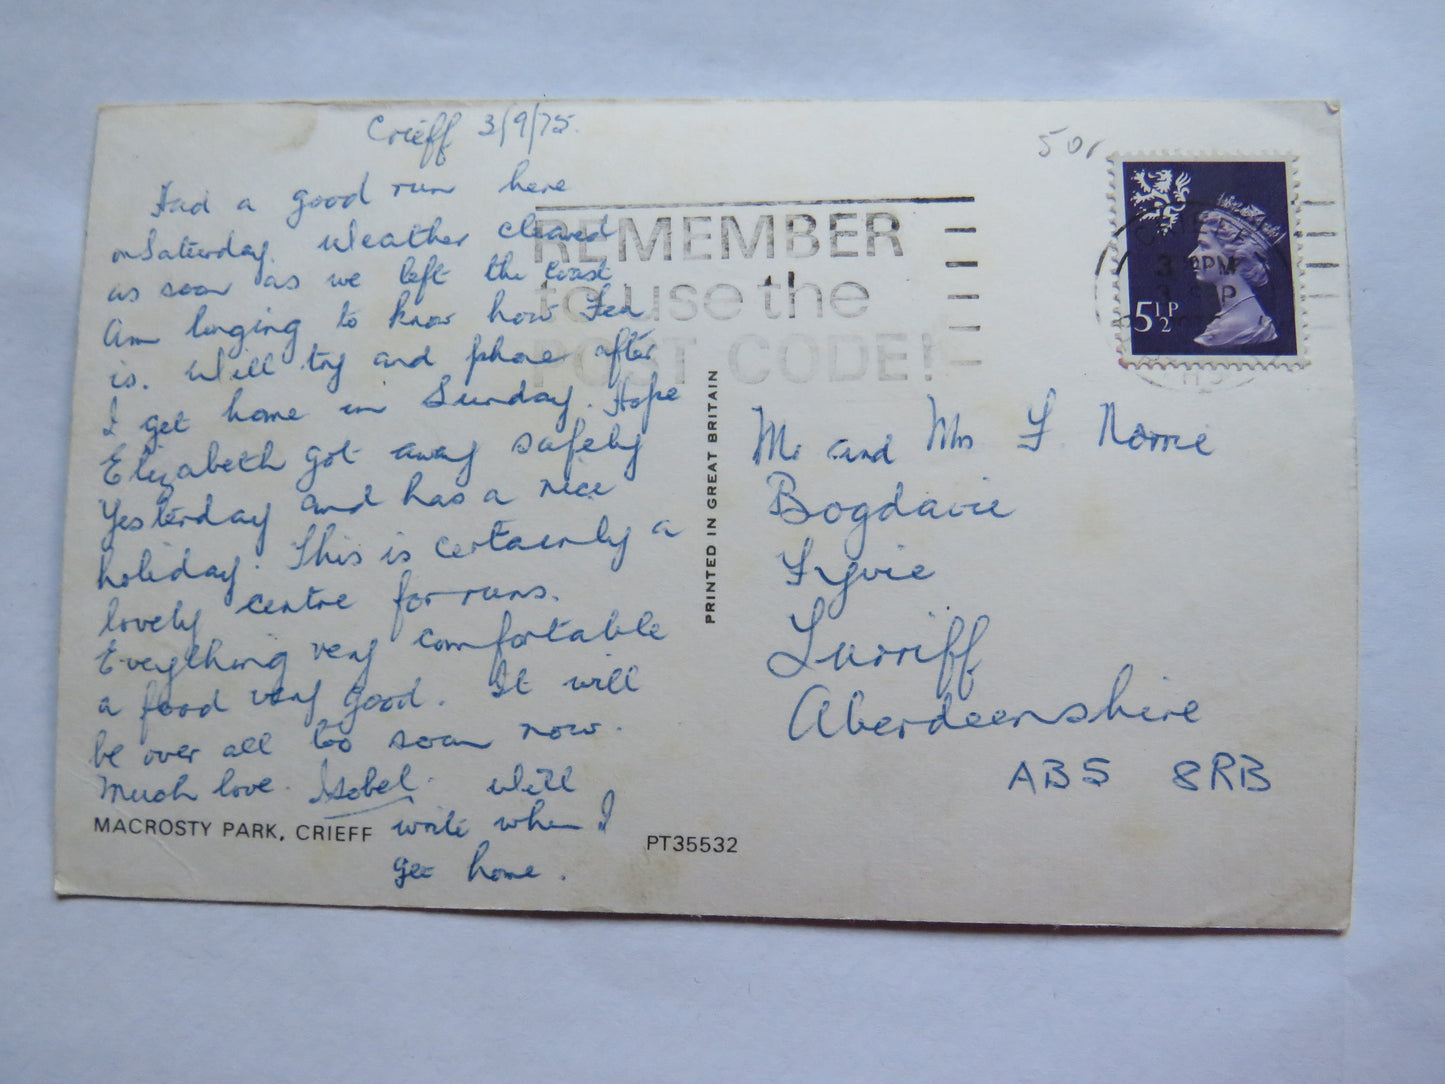 Crieff 3/9/75.
Had a good run here
on Saturday. Weather cleared
as soon as we left the coast
Am longing to know how Fed
is. Will try and phone after
I get home in Sunday. Hope
Elizabeth got away safely
Yesterday and has a nice
holiday. This is certainly a
lovely centre for runs.
Everything very comfortable
a food very good. It will
be over all too soon now.
Much love. Isobel. Will
write when I
get home.
MACROSTY PARK, CRIEFF
PT35532
PRINTED IN GREAT BRITAIN
50
REMEMBER
to use the
POST CODE!
3 PM
3 SP
5½P
Mr and Mrs F. Norrie
Bogdavie
Fyvie
Turriff
Aberdeenshire
AB5 8RB